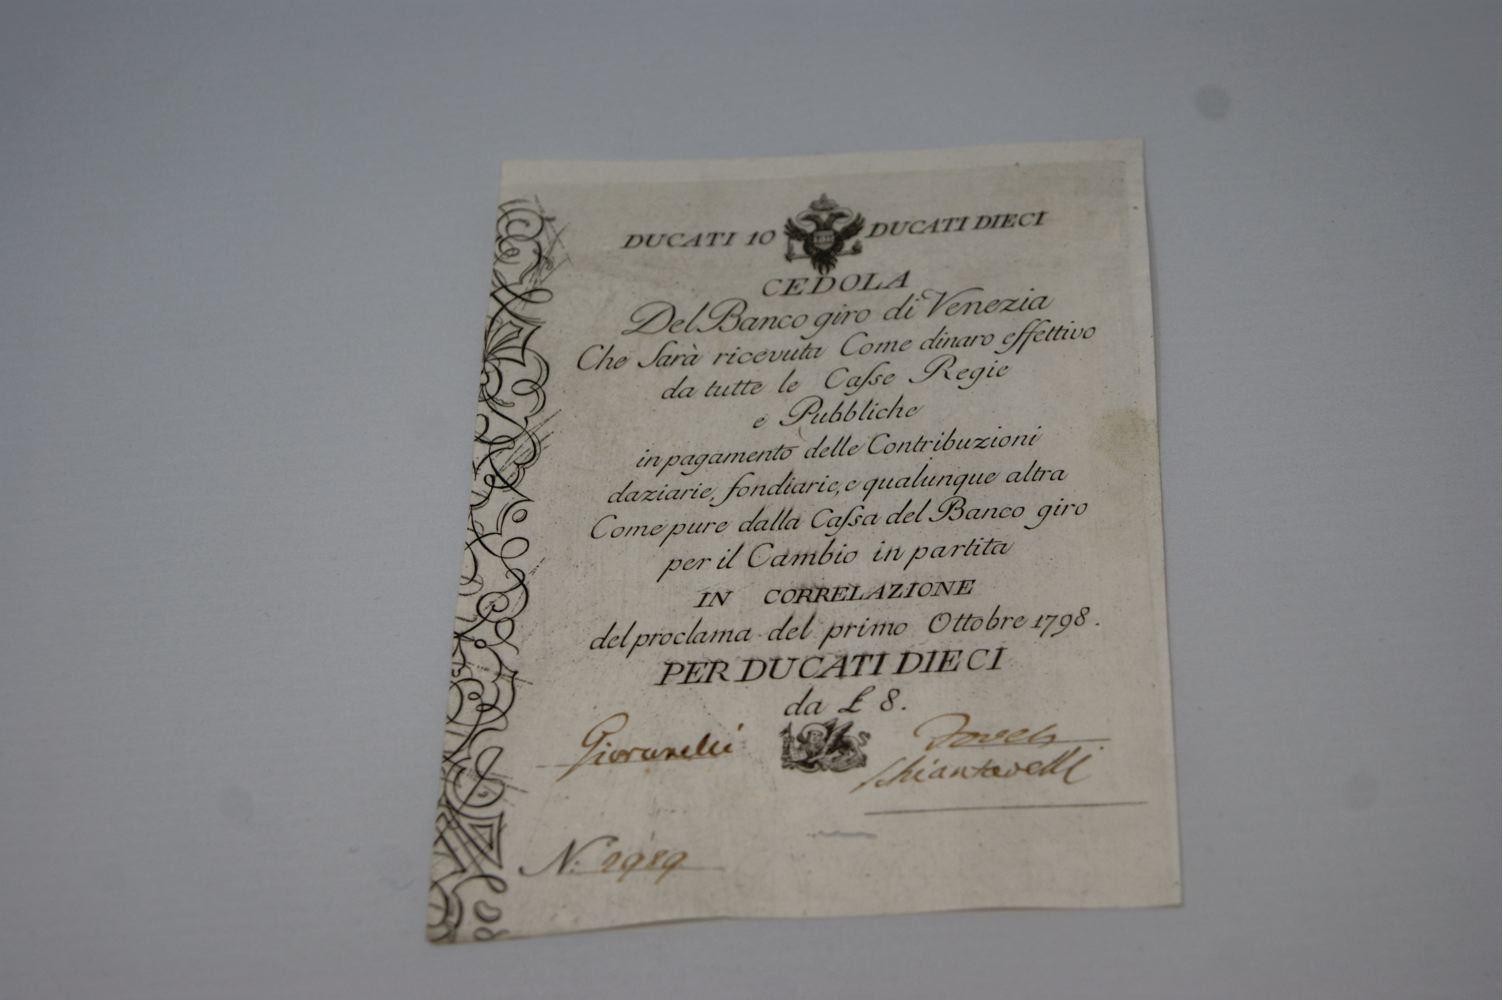 DUCATI 10 DUCATI DIECI
CEDOLA
Del Banco giro di Venezia
Che Sarà ricevuta Come dinaro effettivo
da tutte le Caſse Regie
e Pubbliche
in pagamento delle Contribuzioni
daziarie, fondiarie, e qualunque altra
Come pure dalla Caſsa del Banco giro
per il Cambio in partita
IN CORRELAZIONE
del proclama del primo Ottobre 1798.
PER DUCATI DIECI
da £ 8.
N. 2989